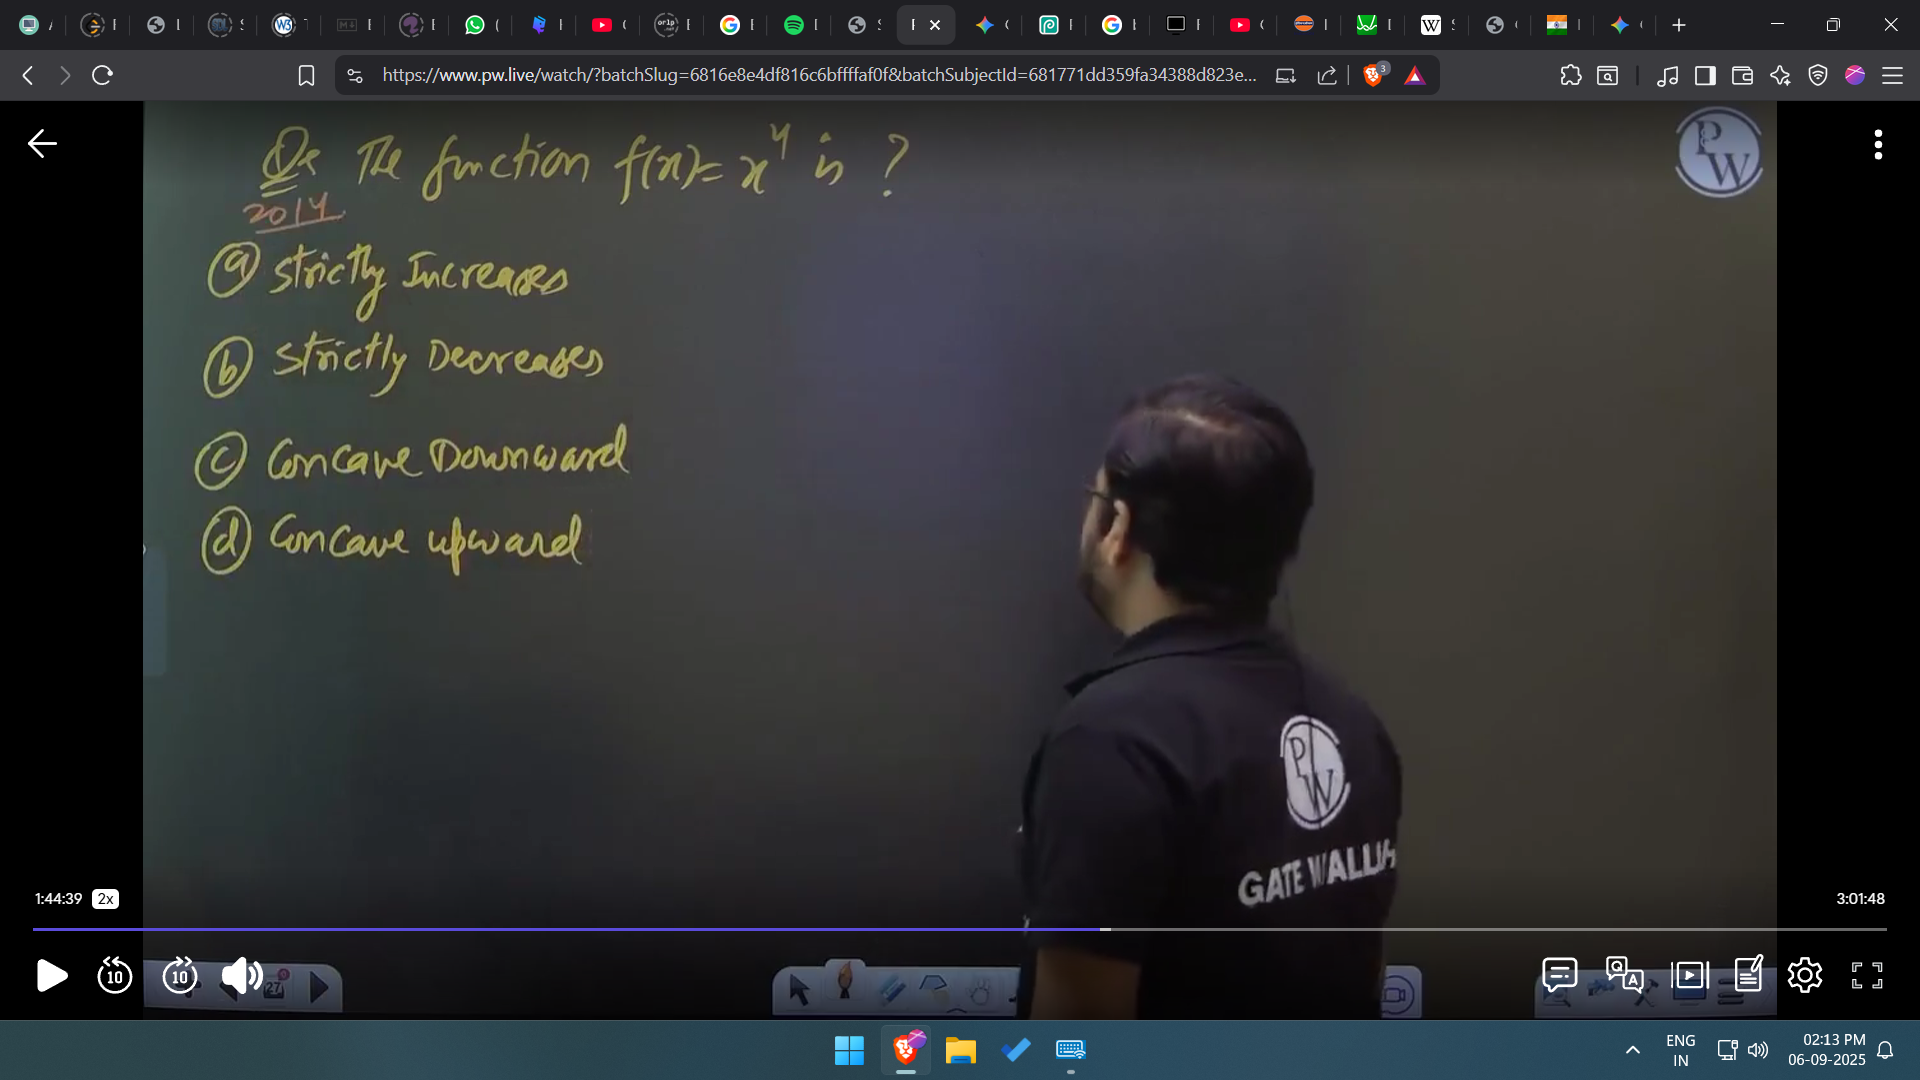 https://www.pw.live/watch/?batchSlug=6816e8e4df816c6bffffaf0f&batchSubjectId=681771dd359fa34388d823e...
3
Qs The function f(x)= x⁴ is ?
2014
PW
(a) Strictly Increases
(b) Strictly Decreases
(c) Concave Downward
(d) Concave upward
PW
GATE WALLAH
1:44:39 2x 3:01:48
10 10
27
ENG
IN
02:13 PM
06-09-2025